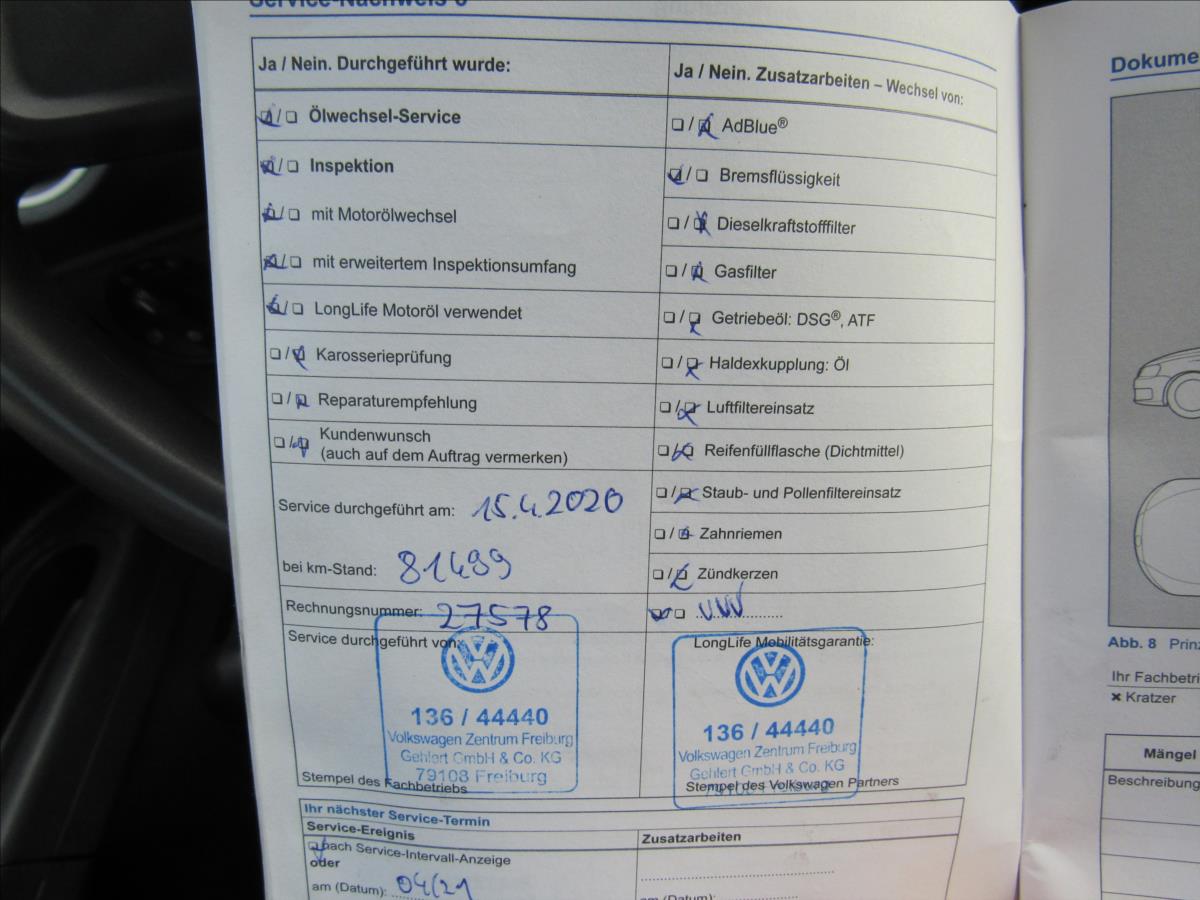 Service-Nachweis
Ja / Nein. Durchgeführt wurde:
❏ / ❏ Ölwechsel-Service
❏ / ❏ Inspektion
❏ / ❏ mit Motorölwechsel
❏ / ❏ mit erweitertem Inspektionsumfang
❏ / ❏ LongLife Motoröl verwendet
❏ / ❏ Karosserieprüfung
❏ / ❏ Reparaturempfehlung
❏ / ❏ Kundenwunsch
(auch auf dem Auftrag vermerken)
Service durchgeführt am: 15.4.2020
bei km-Stand: 81499
Rechnungsnummer: 27578
Service durchgeführt von:
136 / 44440
Volkswagen Zentrum Freiburg
Gehlert GmbH & Co. KG
79108 Freiburg
Stempel des Fachbetriebs
Ja / Nein. Zusatzarbeiten – Wechsel von:
❏ / ❏ AdBlue®
❏ / ❏ Bremsflüssigkeit
❏ / ❏ Dieselkraftstofffilter
❏ / ❏ Gasfilter
❏ / ❏ Getriebeöl: DSG®, ATF
❏ / ❏ Haldexkupplung: Öl
❏ / ❏ Luftfiltereinsatz
❏ / ❏ Reifenfüllflasche (Dichtmittel)
❏ / ❏ Staub- und Pollenfiltereinsatz
❏ / ❏ Zahnriemen
❏ / ❏ Zündkerzen
LongLife Mobilitätsgarantie:
136 / 44440
Volkswagen Zentrum Freiburg
Gehlert GmbH & Co. KG
Stempel des Volkswagen Partners
Ihr nächster Service-Termin
Service-Ereignis
❏ nach Service-Intervall-Anzeige
oder
am (Datum): 04/21
Zusatzarbeiten
am (Datum):
Dokume
Abb. 8 Prinz
Ihr Fachbetri
✖ Kratzer
Mängel
Beschreibung